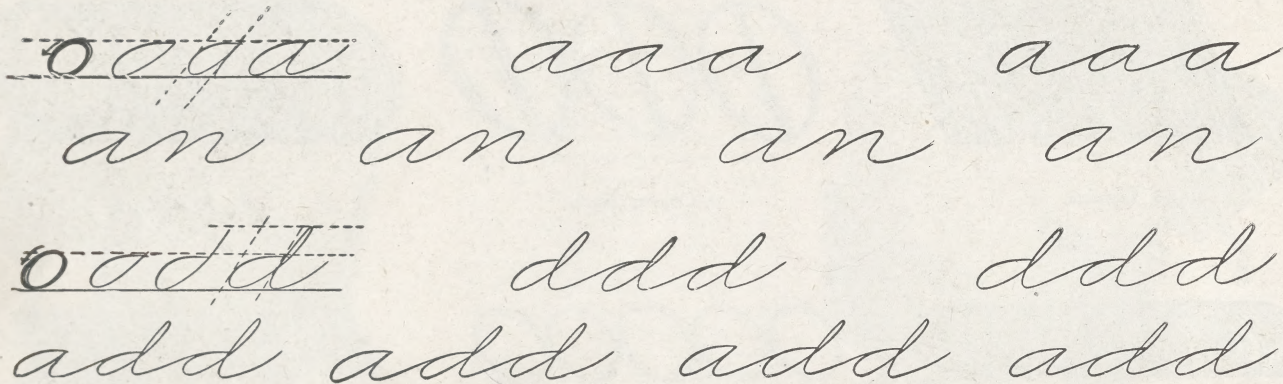 o o a a aaa aaa
an an an an
o o d d ddd ddd
add add add add